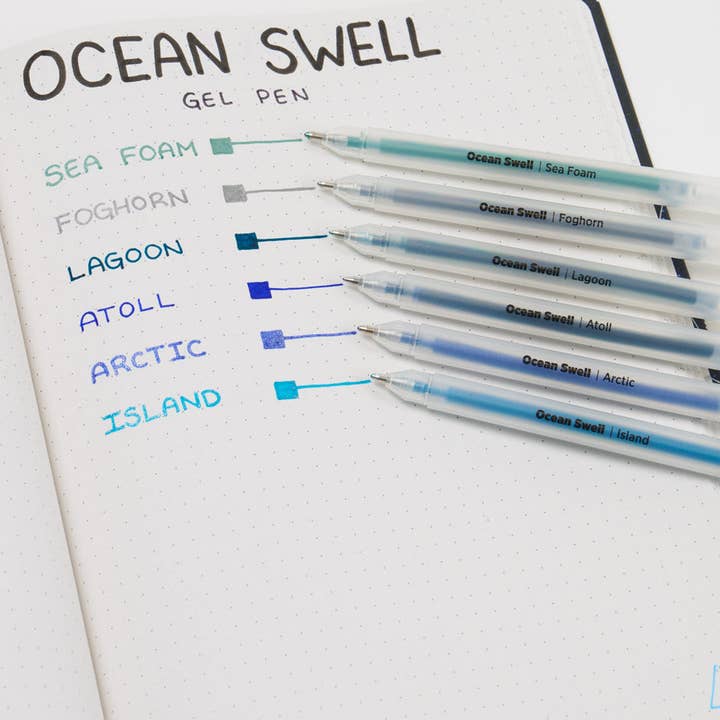 OCEAN SWELL
GEL PEN
SEA FOAM
FOGHORN
LAGOON
ATOLL
ARCTIC
ISLAND
Ocean Swell | Sea Foam
Ocean Swell | Foghorn
Ocean Swell | Lagoon
Ocean Swell | Atoll
Ocean Swell | Arctic
Ocean Swell | Island